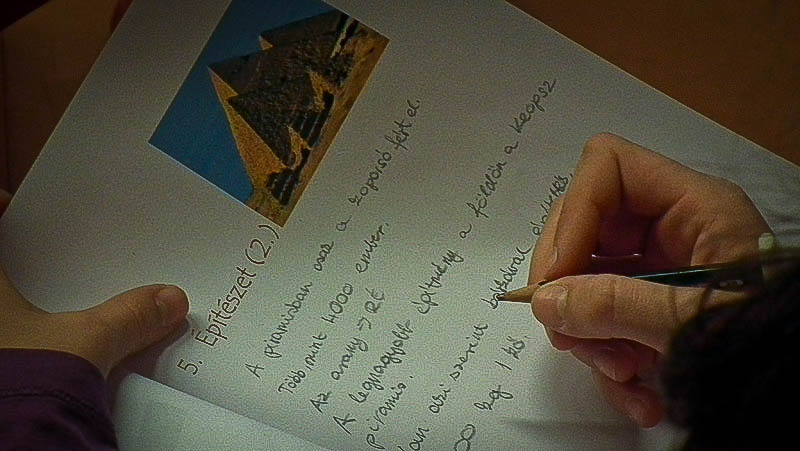 5. Építészet (2.)
A piramisban csak a koporsó fért el.
Több, mint 4000 ember.
Az arany → RÉ
A legnagyobb építmény a földön a Keopsz
piramis.
azi szerint
00 kg 1 kő